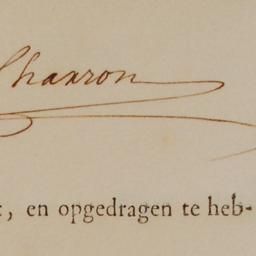 Chaxron
, en opgedragen te heb-